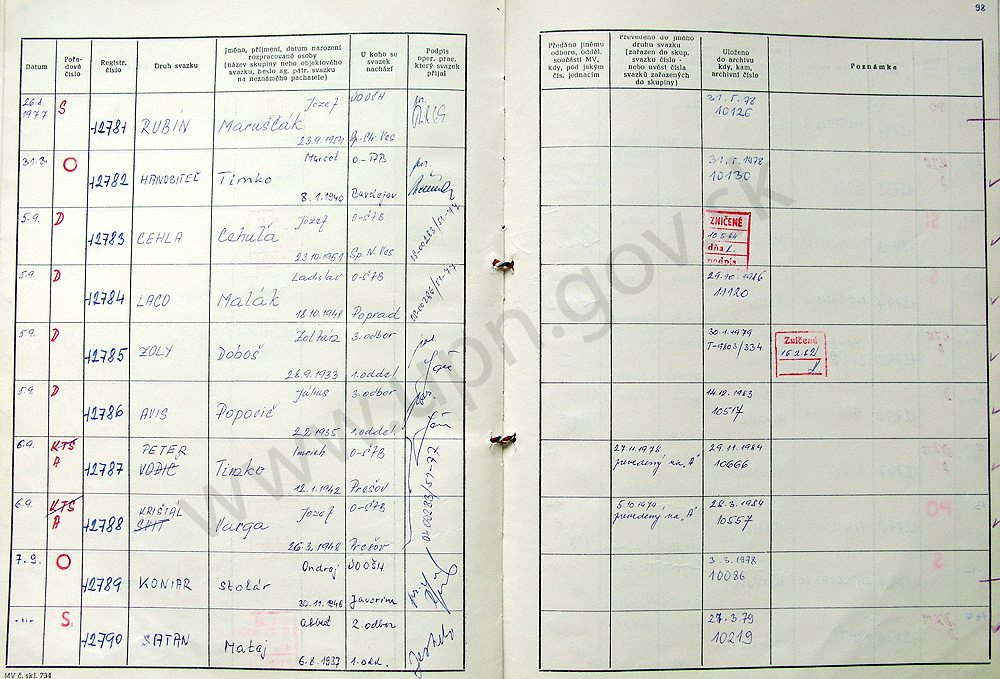 98
Datum
Pořadové číslo
Registr. číslo
Druh svazku
Jméno, příjmení, datum narození
rozpracované osoby
(název skupiny nebo objektového
svazku, heslo ag. pátr. svazku
na neznámého pachatele)
U koho se
svazek
nachází
Podpis
oper. prac.
který svazek
přijal
Předáno jinému
odboru, odděl.
součásti MV,
kdy, pod jakým
čís. jednacím
Převedeno do jiného
druhu svazku
(zařazen do skup.
svazku číslo -
nebo uvést čísla
svazků zařazených
do skupiny)
Uloženo
do archivu
kdy, kam,
archivní číslo
Poznámka
1977 S 12781 RUBÍN Jozef Maruščák 23.9.1954 Sp. Str. Ves 31.5.78 10126
31.8. O 12782 Timko 8.1.1940 Bardejov 31.5.1978 10130
5.9. D 12783 CEHLA Jozef Cehuľa 23.10.1951 O-ŠTB Sp. N. Ves ZNIČENÉ dňa podpis
5.9. D 12784 LACO Ladislav Malák 18.10.1948 O-ŠTB Poprad 29.10.1986 11120
5.9. D 12785 ZOLY Zoltán Doboš 28.9.1933 3. odbor 1. oddel. 30.1.1979 T-9803/334 Zničené 16.2.82
5.9. D 12786 AVIS Július Popovič 2.2.1935 3. odbor 1. oddel. 14.12.1983 10517
6.9. KTS A 12787 PETER Imrich Timko 12.1.1942 O-ŠTB Prešov 27.11.1978 prevedený na „A" 29.11.1984 10666
6.9. KTS A 12788 KRIŠTAL Jozef Varga 26.3.1948 O-ŠTB Prešov 5.10.1979 prevedený na „A" 28.3.1984 10557
7.9. O 12789 KONIAR Ondrej Stolár 30.11.1946 Javorina 3.3.1978 10086
-"- S. 12790 SATAN Mataj 6.8.1937 2. odbor 1. odd. 27.3.79 10219
MV č. skl. 734
www.upn.gov.sk